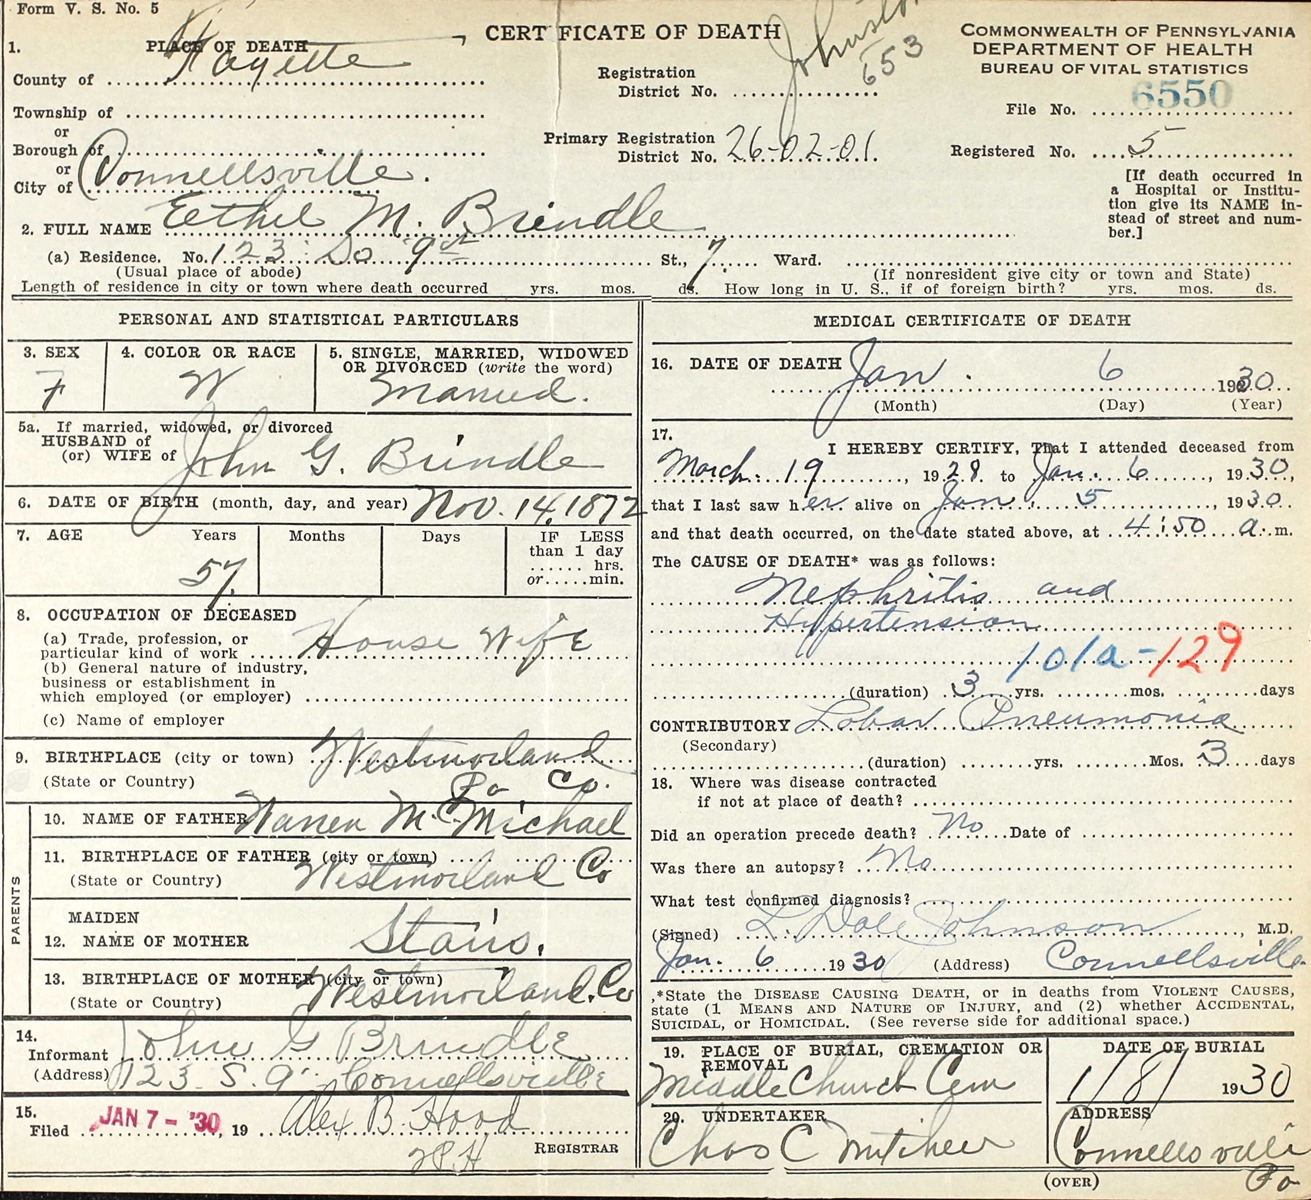 Form V. S. No. 5
CERTIFICATE OF DEATH
COMMONWEALTH OF PENNSYLVANIA
DEPARTMENT OF HEALTH
BUREAU OF VITAL STATISTICS
1. PLACE OF DEATH
County of Fayette
Registration District No. 653
File No. 6550
Township of
or
Borough of
or
City of Connellsville.
Primary Registration District No. 26-02-01.
Registered No. 5
[If death occurred in a Hospital or Institution give its NAME instead of street and number.]
2. FULL NAME Eethel M. Brindle
(a) Residence. No. 123 So 9th St., 7 Ward.
(Usual place of abode)
(If nonresident give city or town and State)
Length of residence in city or town where death occurred yrs. mos. ds. How long in U. S., if of foreign birth? yrs. mos. ds.
PERSONAL AND STATISTICAL PARTICULARS
3. SEX
F
4. COLOR OR RACE
W
5. SINGLE, MARRIED, WIDOWED OR DIVORCED (write the word)
Married.
5a. If married, widowed, or divorced
HUSBAND of
(or) WIFE of John G. Brindle
6. DATE OF BIRTH (month, day, and year) Nov. 14, 1872
7. AGE Years Months Days
57.
IF LESS than 1 day
...... hrs.
or.....min.
8. OCCUPATION OF DECEASED
(a) Trade, profession, or particular kind of work House Wife
(b) General nature of industry, business or establishment in which employed (or employer)
(c) Name of employer
9. BIRTHPLACE (city or town) Westmorland Co.
(State or Country) Pa
PARENTS
10. NAME OF FATHER Warren McMichael
11. BIRTHPLACE OF FATHER (city or town)
(State or Country) Westmorland Co
MAIDEN
12. NAME OF MOTHER
13. BIRTHPLACE OF MOTHER (city or town)
(State or Country) Westmorland. Co
14.
Informant John G Brindle
(Address) 123 S. 9 Connellsville
15.
Filed JAN 7 - '30, 19 Alex B. Hood
REGISTRAR
MEDICAL CERTIFICATE OF DEATH
16. DATE OF DEATH Jan. 6 1930
(Month) (Day) (Year)
17.
I HEREBY CERTIFY, That I attended deceased from
March 19, 1929 to Jan. 6, 1930,
that I last saw her alive on Jan. 5, 1930
and that death occurred, on the date stated above, at 4:50 a.m.
The CAUSE OF DEATH* was as follows:
Nephritis and
Hypertension
101a-129
(duration) 3 yrs. mos. days
CONTRIBUTORY Lobar Pneumonia
(Secondary)
(duration) yrs. Mos. 3 days
18. Where was disease contracted
if not at place of death?
Did an operation precede death? No Date of
Was there an autopsy? No
What test confirmed diagnosis?
(Signed) L. Dale Johnson, M.D.
Jan. 6 1930 (Address) Connellsville.
*State the DISEASE CAUSING DEATH, or in deaths from VIOLENT CAUSES,
state (1 MEANS AND NATURE OF INJURY, and (2) whether ACCIDENTAL,
SUICIDAL, OR HOMICIDAL. (See reverse side for additional space.)
19. PLACE OF BURIAL, CREMATION OR REMOVAL
Middle Church Cem
DATE OF BURIAL
1/8/ 1930
20. UNDERTAKER
Chas C
ADDRESS
Connellsville
Pa
(OVER)